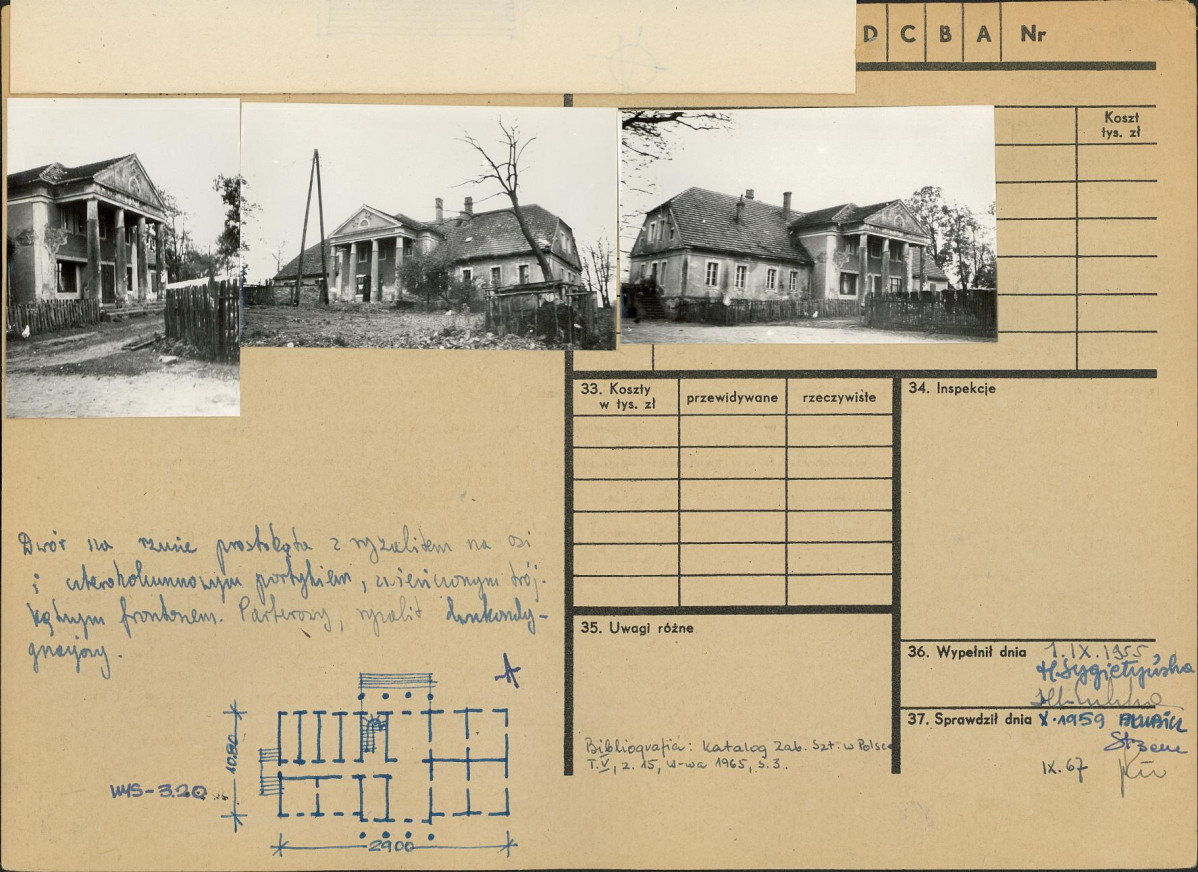 D C B A Nr
Koszt
tys. zł
33. Koszty
w tys. zł
przewidywane
rzeczywiste
34. Inspekcje
Dwór na rzucie prostokąta z ryzalitem na osi
i czterokolumnowym portykiem, zwieńczonym trój-
kątnym frontonem. Parterowy, ryzalit dwukondy-
gnacyjny.
35. Uwagi różne
Bibliografia: Katalog Zab. Szt. w Polsce
T. V, z. 15, W-wa 1965, s. 3.
36. Wypełnił dnia 1.IX.1955
H. Sygietyńska
37. Sprawdził dnia X.1959
IX. 67
1080
WYS-3.20
2900